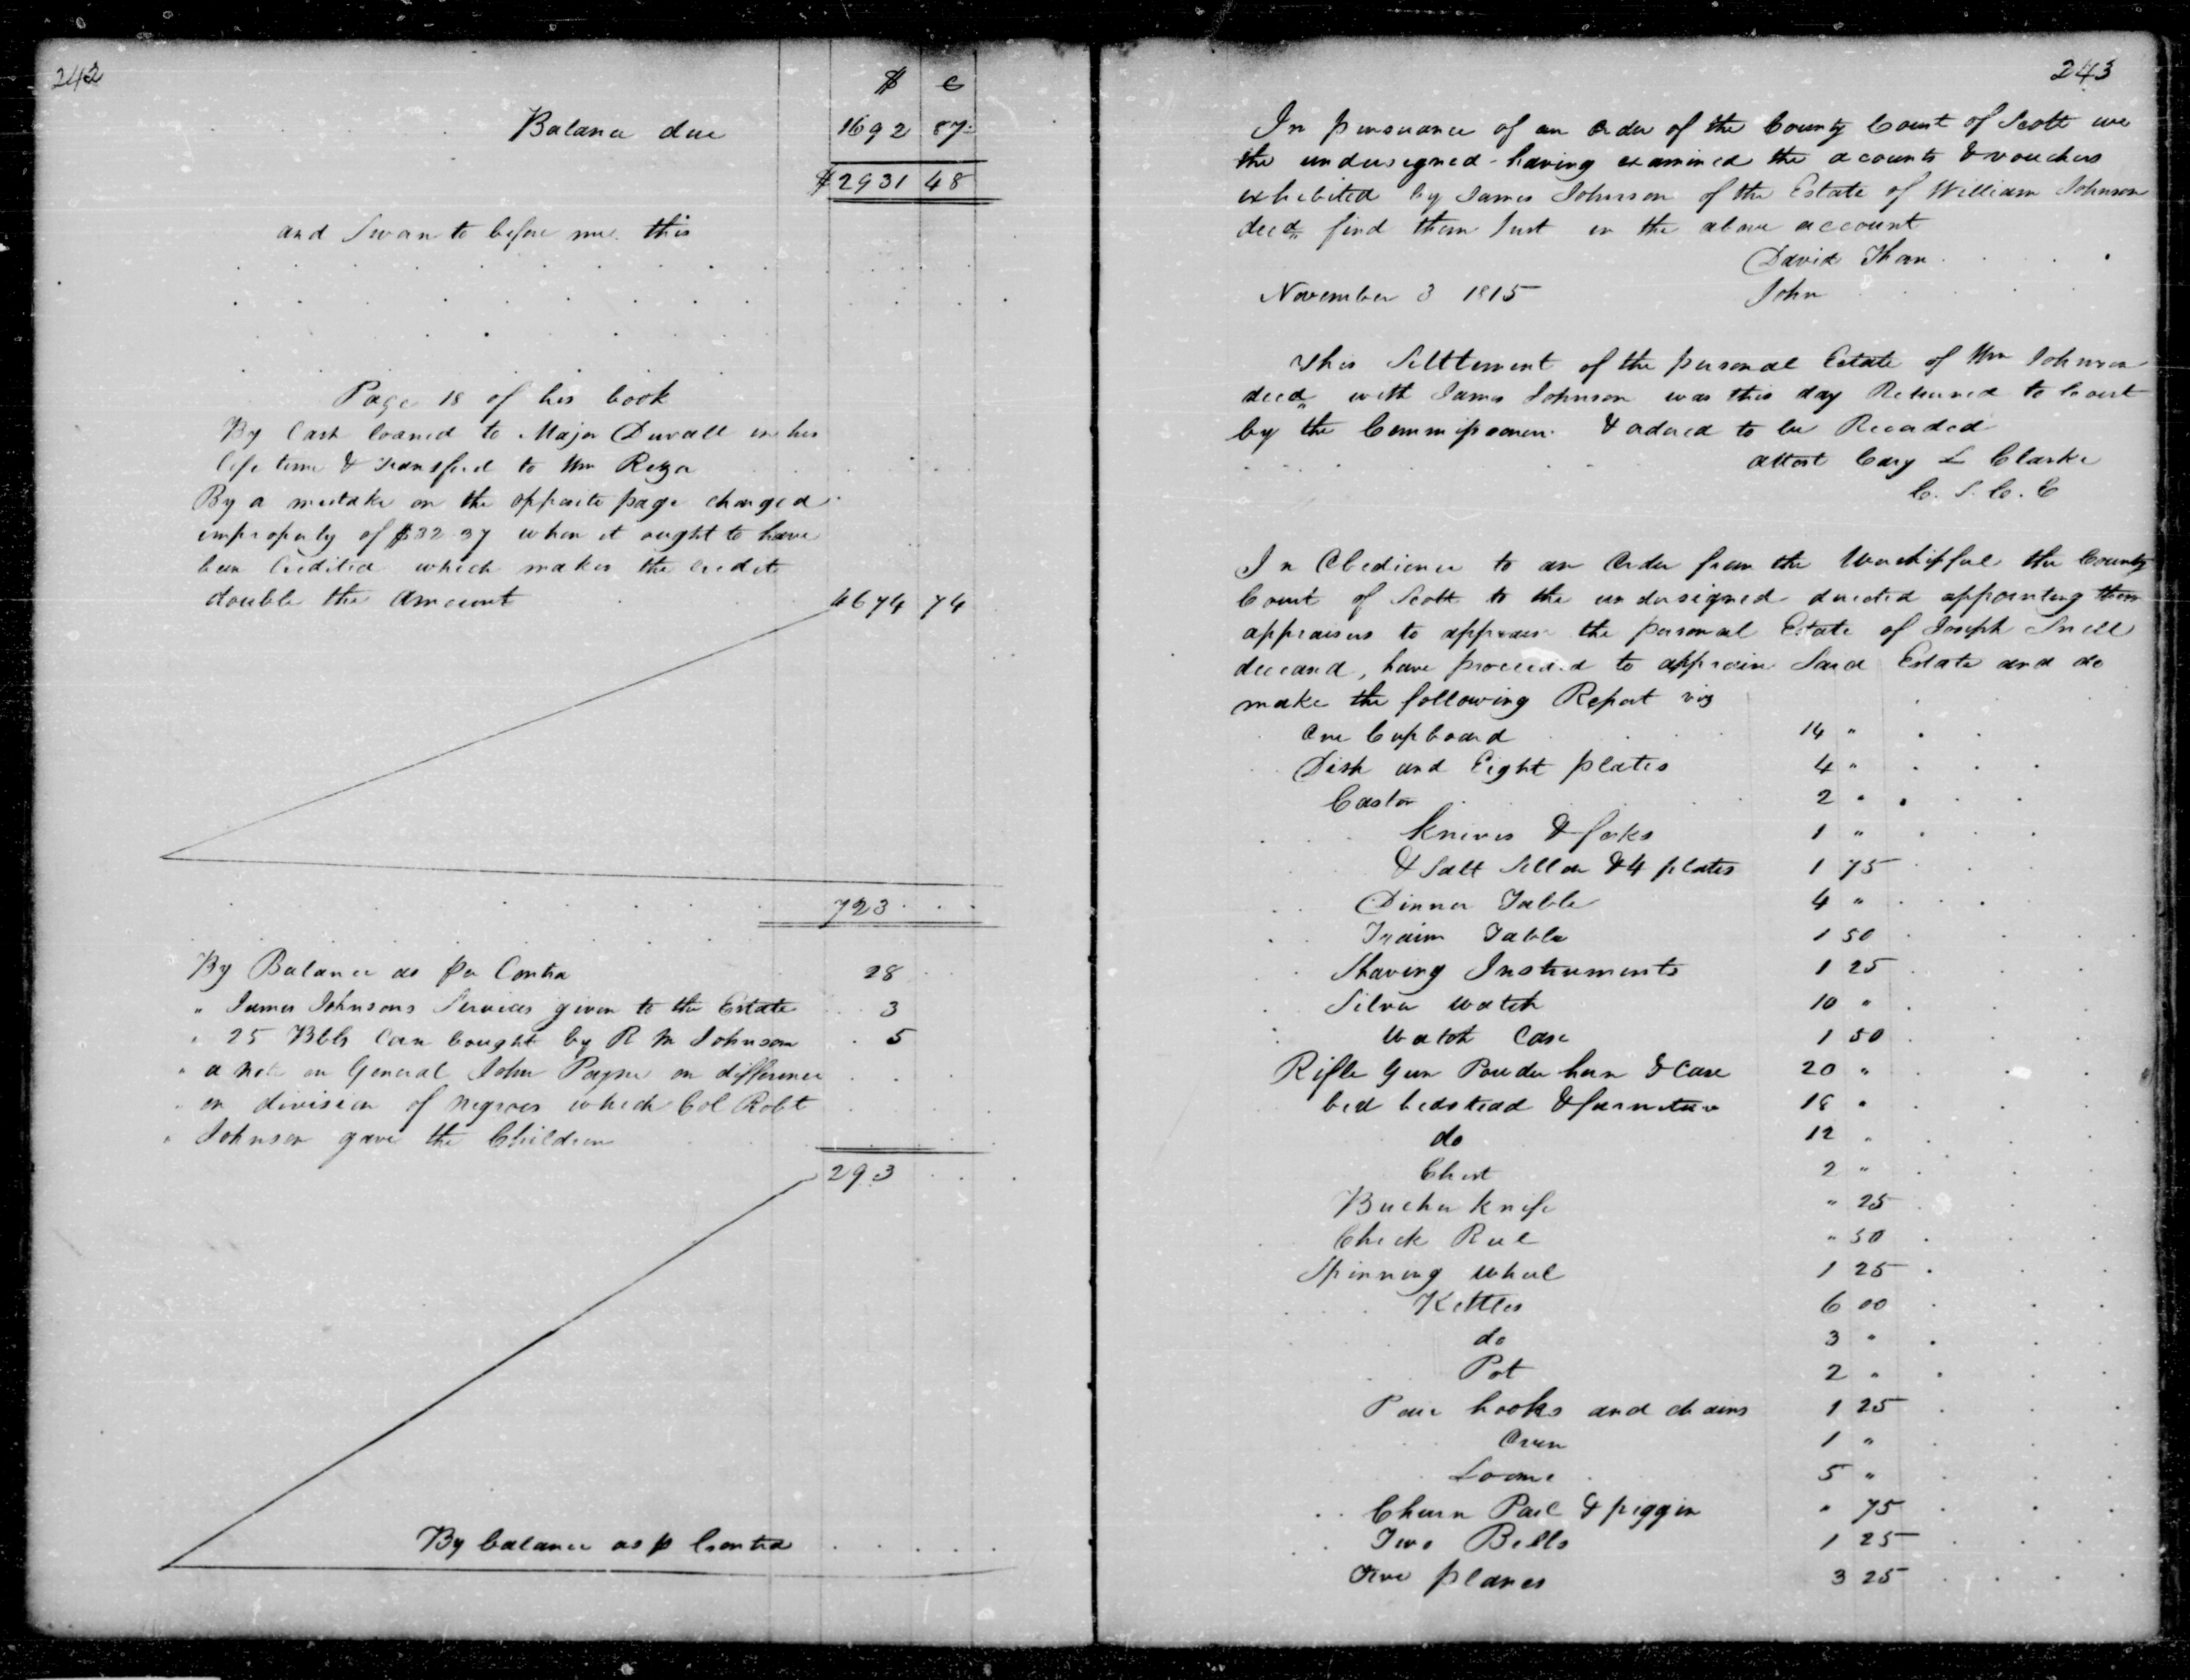 242
$ c
Balance due 1692 87
$2931 48
and Swan to before me this
Page 18 of his book
By Cash loaned to Major Duvall in his
life time & transferd to Wm
By a mistake on the opposite page charged
improperly of $32 37 when it ought to have
been Credited which makes the credit
double the amount 4674 74
723
By Balance as per Contra 28
" James Johnsons Services given to the Estate 3
" 25 Bbls Corn bought by R M Johnson 5
" a note on General John Payne on difference
" on division of Negroes which Col Robt
" Johnson gave the Children
293
By balance as p Contra
243
In pursuance of an order of the County Court of Scott we
the undersigned having examined the accounts & vouchers
exhibited by James Johnson of the Estate of William Johnson
decd, find them Just in the above account
David
November 3 1815 John
This Settlement of the personal Estate of Wm Johnson
decd, with James Johnson was this day Returned to Court
by the Commissioners & ordered to be Recorded
attest Cary L Clarke
C. S. C. C
In Obedience to an Order from the Worshipful the County
Court of Scott to the undersigned directed appointing them
appraisers to appraise the personal Estate of Joseph Snell
deceasd, have proceeded to appraise Said Estate and do
make the following Report viz
One Cupboard 14 "
Dish and Eight plates 4 "
Castor 2 "
Knives & forks 1 "
& Salt Sellar & 4 plates 1 75
Dinner Table 4 "
Table 1 50
Shaving Instruments 1 25
Silver watch 10 "
Watch Case 1 50
Rifle Gun Powder horn & Case 20 "
bed bedstead & furniture 18 "
do 12 "
Chest 2 "
Bucher Knife " 25
Check Reel " 50
Spinning wheel 1 25
Kettles 6 00
do 3 "
Pot 2 "
Pair hooks and chains 1 25
Oven 1 "
Loome 5 "
Churn Pail & piggin " 75
Two Bells 1 25
Five planes 3 25